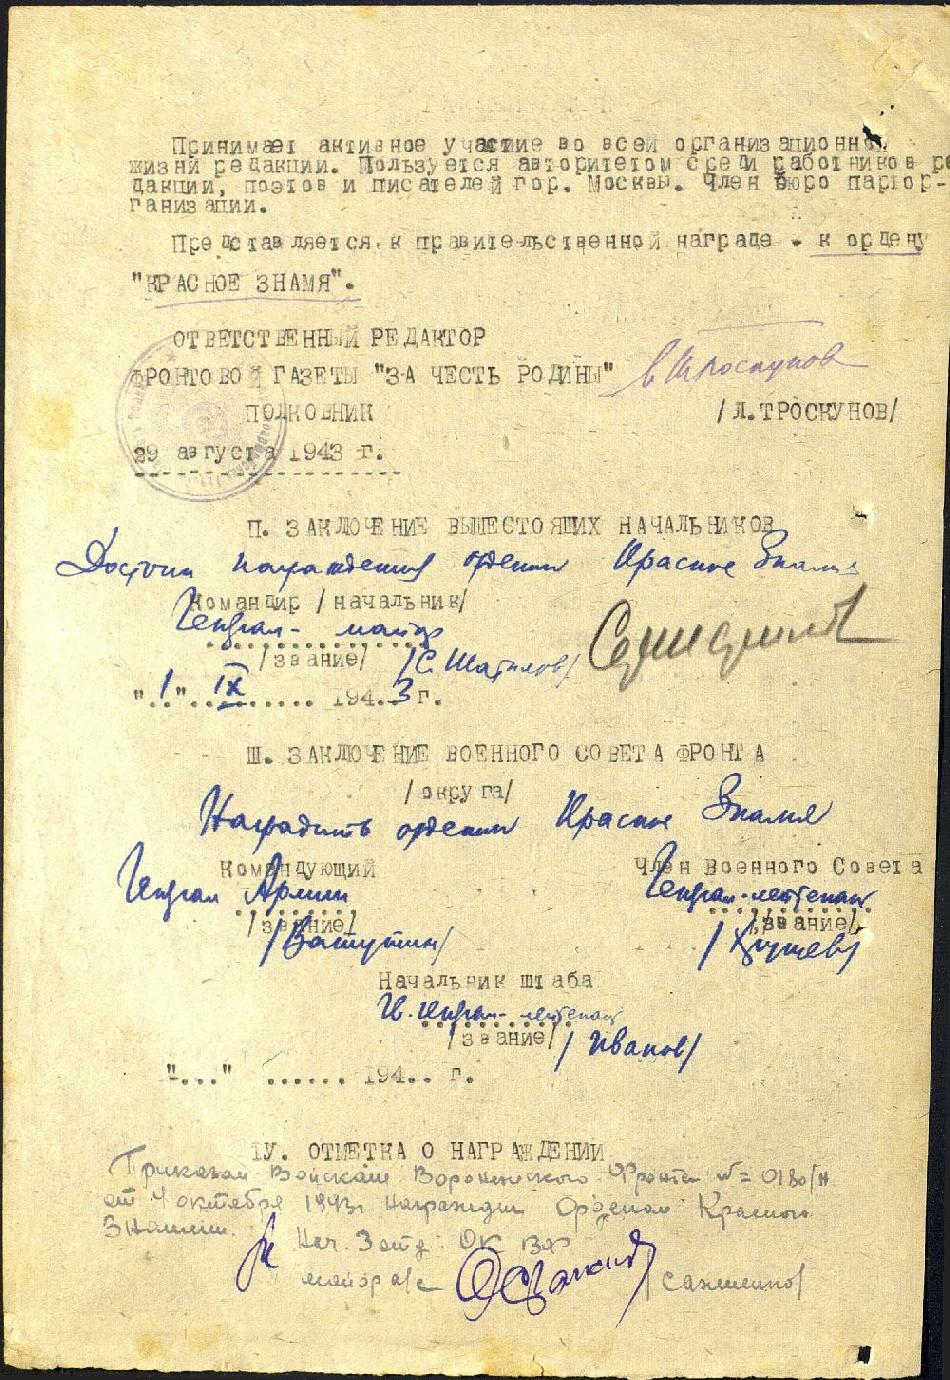 Принимает активное участие во всей организационной
жизни редакции. Пользуется авторитетом среди работников ре
дакции, поэтов и писателей гор. Москвы. Член бюро партор-
ганизации.
Представляется к правительственной награде - к ордену
"КРАСНОЕ ЗНАМЯ".
ОТВЕТСТВЕННЫЙ РЕДАКТОР
ФРОНТОВОЙ ГАЗЕТЫ "ЗА ЧЕСТЬ РОДИНЫ"
ПОЛКОВНИК /Л.ТРОСКУНОВ/
29 августа 1943 г.
П. ЗАКЛЮЧЕНИЕ ВЫШЕСТОЯЩИХ НАЧАЛЬНИКОВ
Достоин награждения орденом Красное Знамя
Командир /начальник/
Генерал-майор
/звание/ /С. Шатилов/
"1" IX 1943 г.
Ш. ЗАКЛЮЧЕНИЕ ВОЕННОГО СОВЕТА ФРОНТА
/округа/
Наградить орденом Красное Знамя
Командующий Член Военного Совета
Генерал Армии Генерал-лейтенант
/звание/ /звание/
/Ватутин/ /Хрущев/
Начальник штаба
Генерал-лейтенант
/звание/ /Иванов/
"..." ...... 194.. г.
1У. ОТМЕТКА О НАГРАЖДЕНИИ
Приказом Войскам Воронежского Фронта № 0180/н
от 4 октября 1943г. награжден Орденом Красного
Знамени.
Нач. 3 отд. ОК ВФ
майор а/с